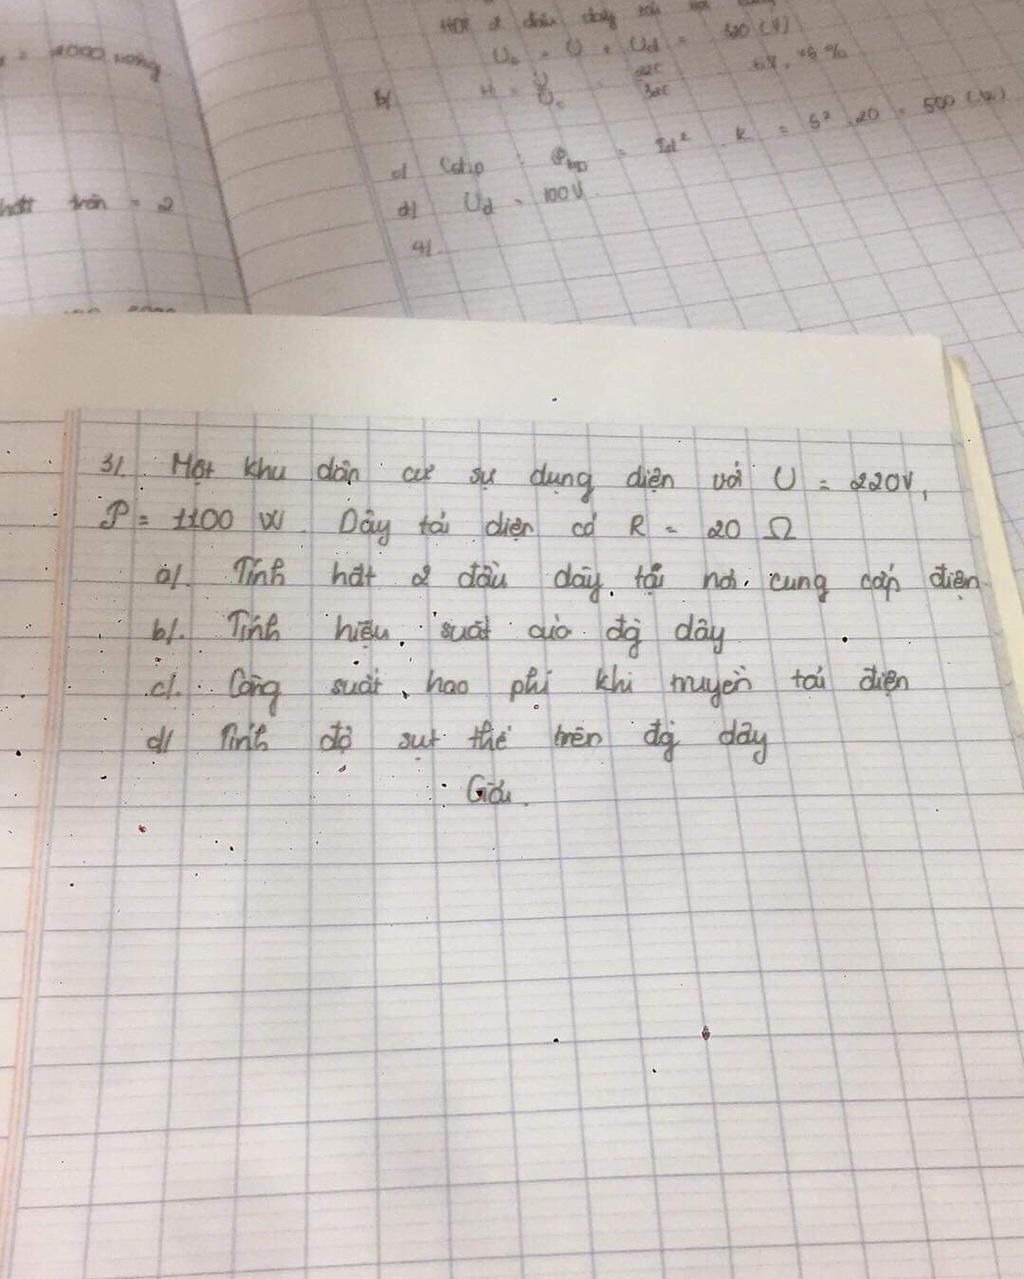 = 2000 vòng
trên = 2
U₀ = U + Ud = 320 (V)
b/ H = U/U₀ =
c/ Cdhp : Php = Id² . R = 5² . 20 = 500 (W)
d/ Ud = 100V
4/
3/ Một khu dân cư sự dụng điện với U = 220V,
P = 1100 W Dây tải điện có R = 20 Ω
a/. Tính hđt 2 đầu dây tại nơi cung cấp điện
b/. Tính hiệu suất của đg dây
c/. Công suất hao phí khi truyền tải điện
d/ Tính độ sụt thế trên đg dây
Giải